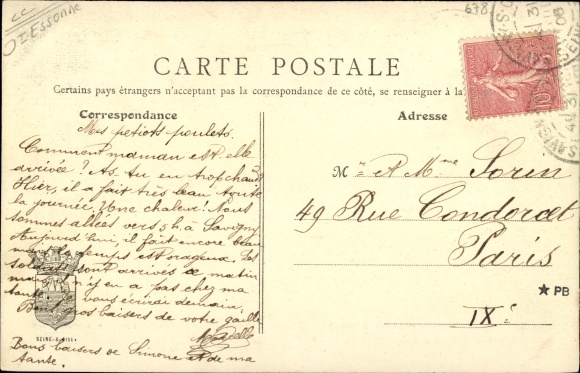 cc
Essonne
678
CARTE POSTALE
Certains pays étrangers n'acceptant pas la correspondance de ce côté, se renseigner à la
Correspondance
Adresse
Mes petiots poulets.
Comment maman est-elle
arrivée? As tu eu trop chaud?
Hier, il a fait très beau toute
la journée. Une chaleur! Nous
sommes allées vers 5h à Savigny
Aujourd'hui, il fait encore beau
mais le temps est orageux. Les
soldats sont arrivés ce matin
mais il n'y en a pas chez ma
tante. vous écrirai demain.
Bons gros baisers de votre
Bons baisers de Simone et de ma
tante.
Mr et Mme Sorin
49 Rue Condorcet
Paris
IXe
★ PB
SEINE-&-OISE
10